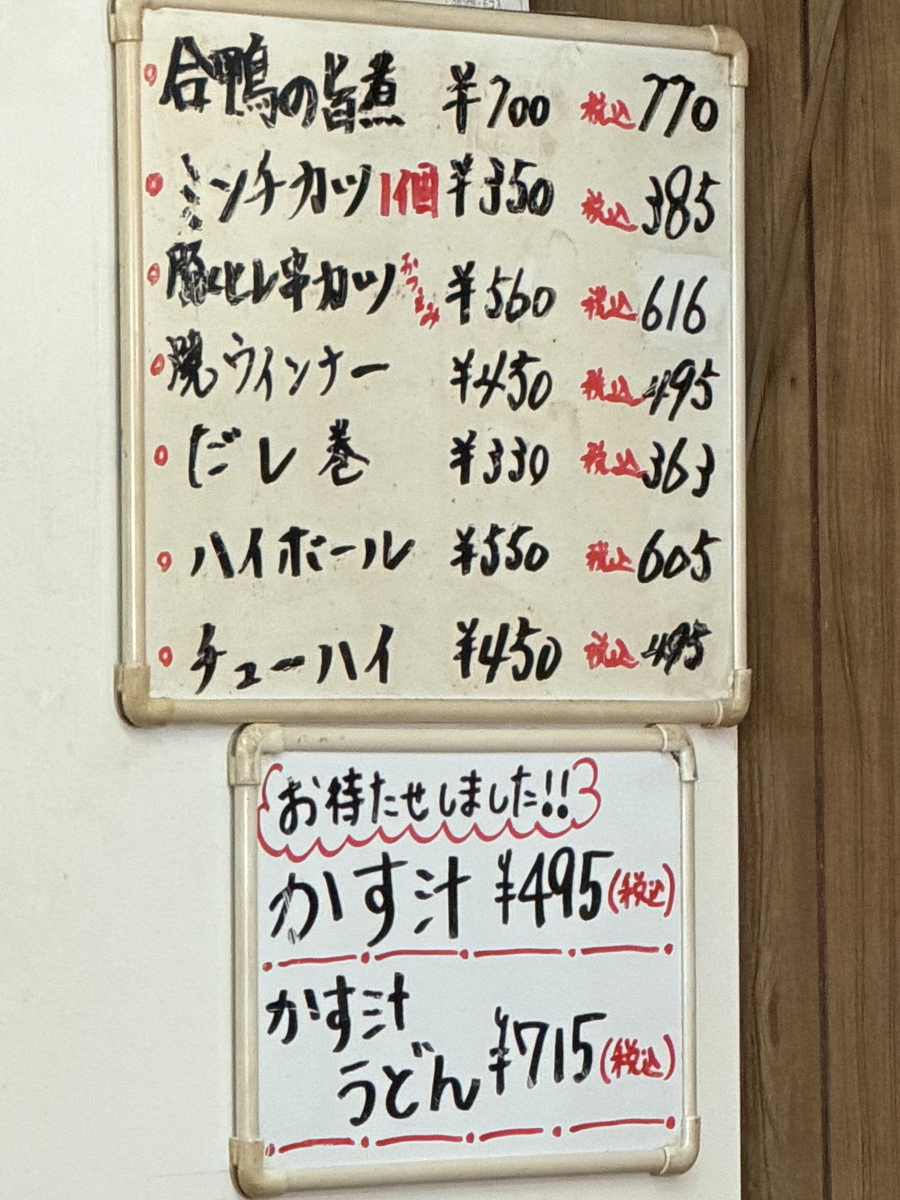 合鴨の旨煮 ¥700 税込770
ミンチカツ1個 ¥350 税込385
豚ヒレ串カツおつまみ ¥560 税込616
焼ウインナー ¥450 税込495
だし巻 ¥330 税込363
ハイボール ¥550 税込605
チューハイ ¥450 税込495
お待たせしました!!
かす汁 ¥495(税込)
かす汁
うどん ¥715(税込)